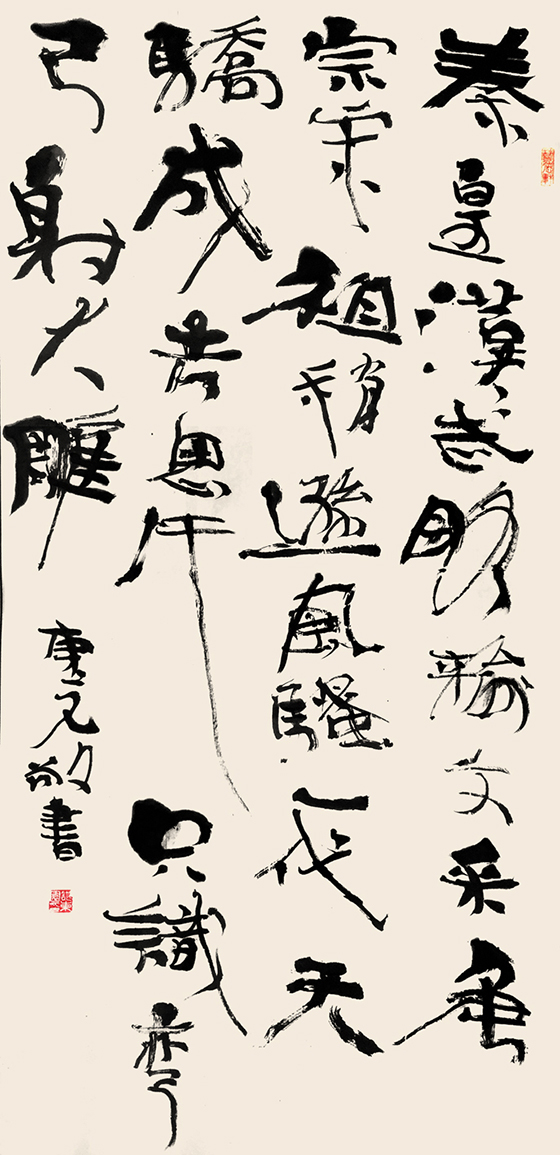 秦皇漢武略輸文采唐
宗宋祖稍遜風騷一代天
驕成吉思汗只識彎
弓射大雕
書